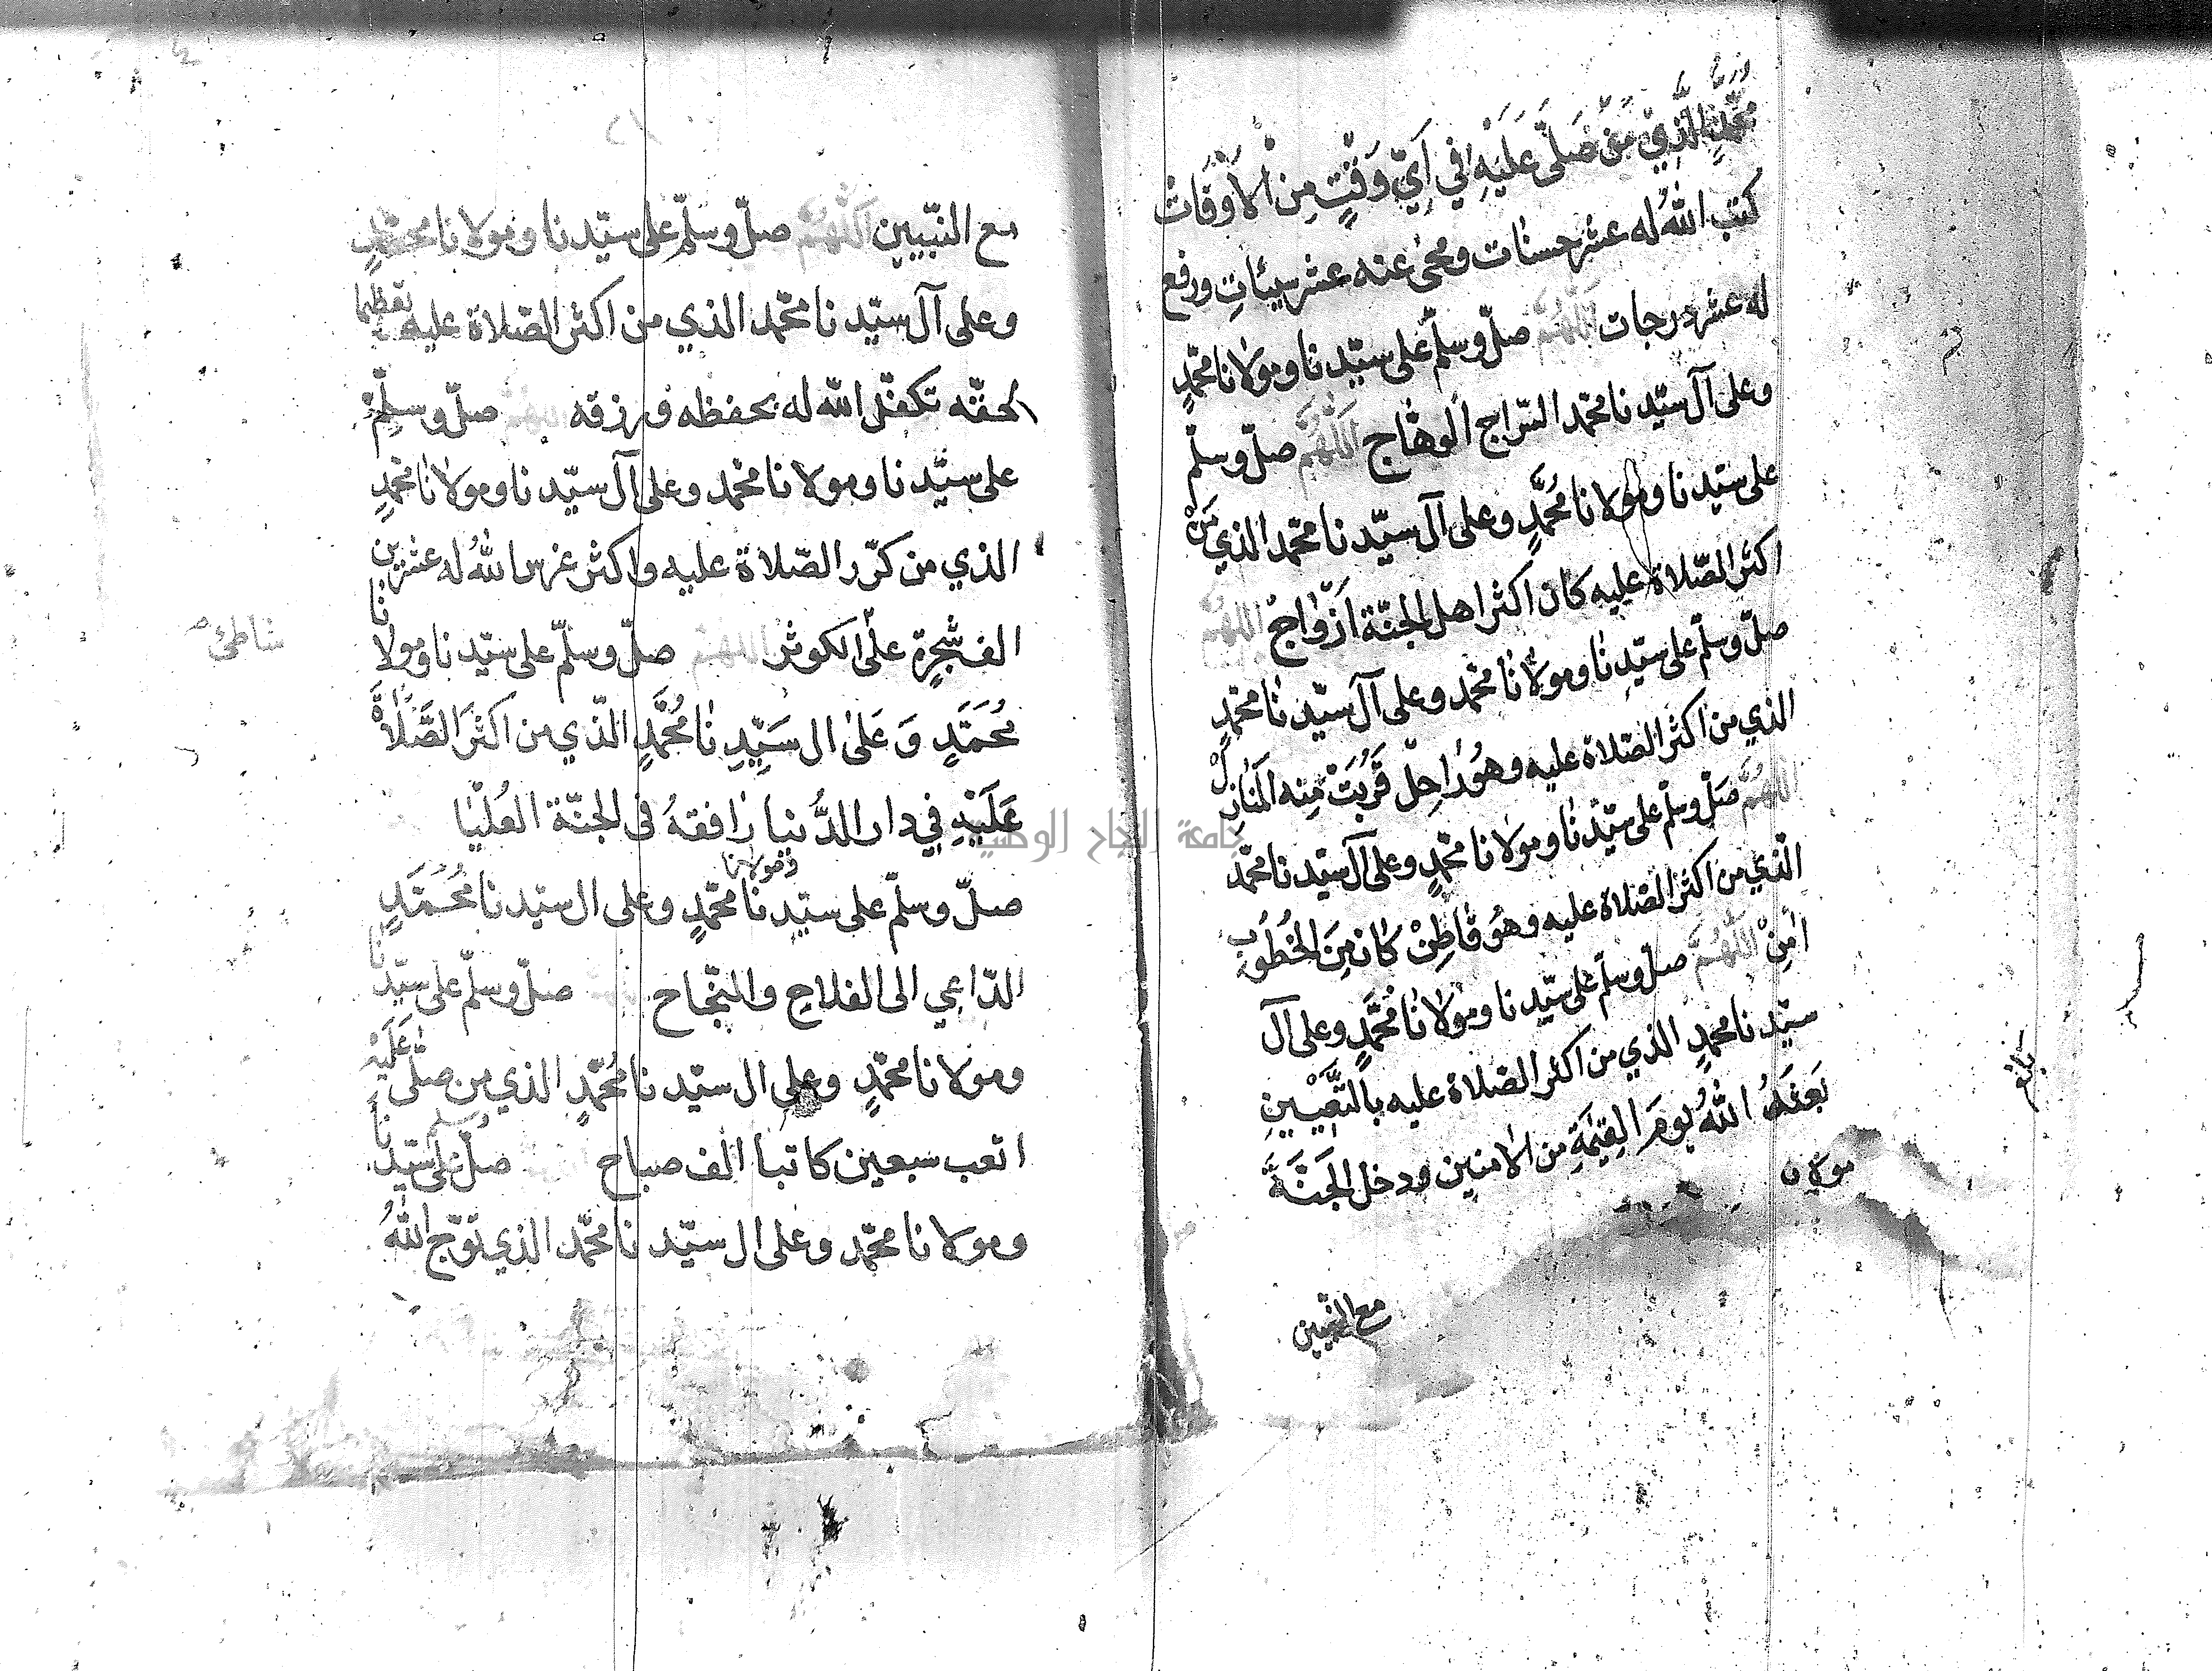 محمد الذي من صلى عليه في أي وقت من الأوقات
كتب الله له عشر حسنات ومحى عنه عشر سيئات ورفع
له عشر درجات اللهم صل وسلم على سيدنا ومولانا محمد
وعلى آل سيدنا محمد السراج الوهاج اللهم صل وسلم
على سيدنا ومولانا محمد وعلى آل سيدنا محمد الذي من
اكثر الصلاة عليه كان اكثر اهل الجنة ازواج اللهم
صل وسلم على سيدنا ومولانا محمد وعلى آل سيدنا محمد
الذي من اكثر الصلاة عليه وهو راحل قربت منه المنازل
اللهم صل وسلم على سيدنا ومولانا محمد وعلى آل سيدنا محمد
الذي من اكثر الصلاة عليه وهو قاطن كان من الخطوب
امن اللهم صل وسلم على سيدنا ومولانا محمد وعلى آل
سيدنا محمد الذي من اكثر الصلاة عليه بالتعيين
بعثه الله يوم القيمة من الامنين ودخل الجنة
مولان
مع النبيين
مع النبيين اللهم صل وسلم على سيدنا ومولانا محمد
وعلى آل سيدنا محمد الذي من اكثر الصلاة عليه تعظيما
لحقه تكفل الله له بحفظه ورزقه اللهم صل وسلم
على سيدنا ومولانا محمد وعلى آل سيدنا ومولانا محمد
الذي من كرر الصلاة عليه واكثر غرس الله له عشرين
الف شجرة على الكوثر اللهم صل وسلم على سيدنا ومولانا
شاطئ
محمد وعلى ال سيدنا محمد الذي من اكثر الصلاة
عليه في دار الدنيا رافقه في الجنة العليا
صل وسلم على سيدنا ومولانا محمد وعلى ال سيدنا محمد
الداعي الى الفلاح والنجاح صل وسلم على سيدنا
ومولانا محمد وعلى ال سيدنا محمد الذي من صلى عليه
اتعب سبعين كاتبا الف صباح صل وسلم على سيدنا
ومولانا محمد وعلى ال سيدنا محمد الذي توج الله
جامعة النجاح الوطنية